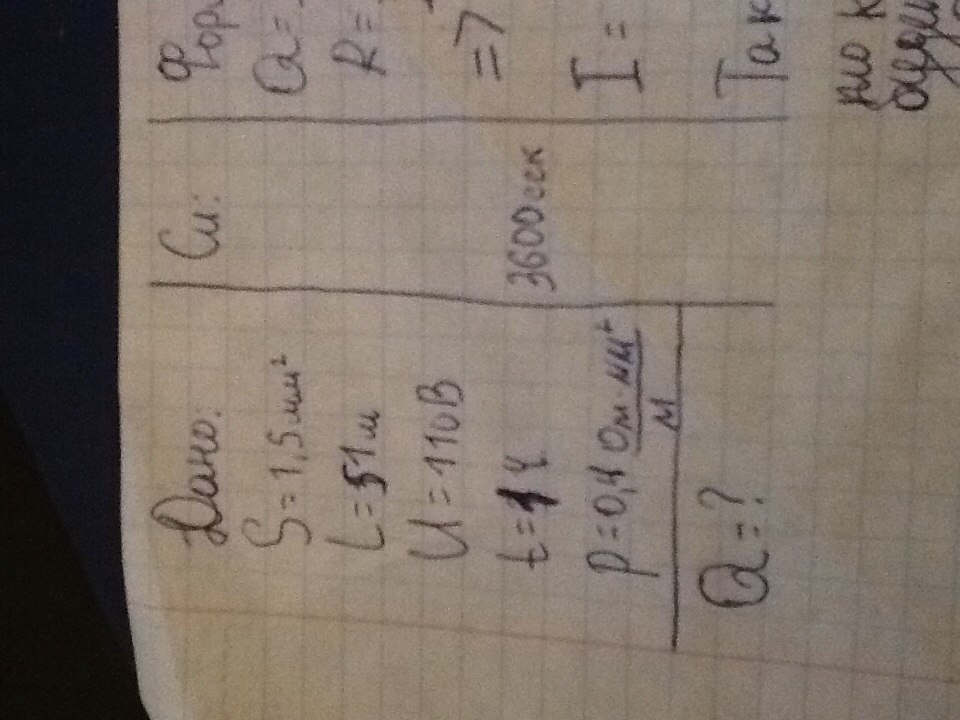 Дано:
S = 1,5 мм²
L = 51 м
U = 110 В
t = 1 ч
ρ = 0,4 Ом · мм²
м
Q = ?
Си:
3600 сек
Фор
Q =
R =
=7
I =
Так